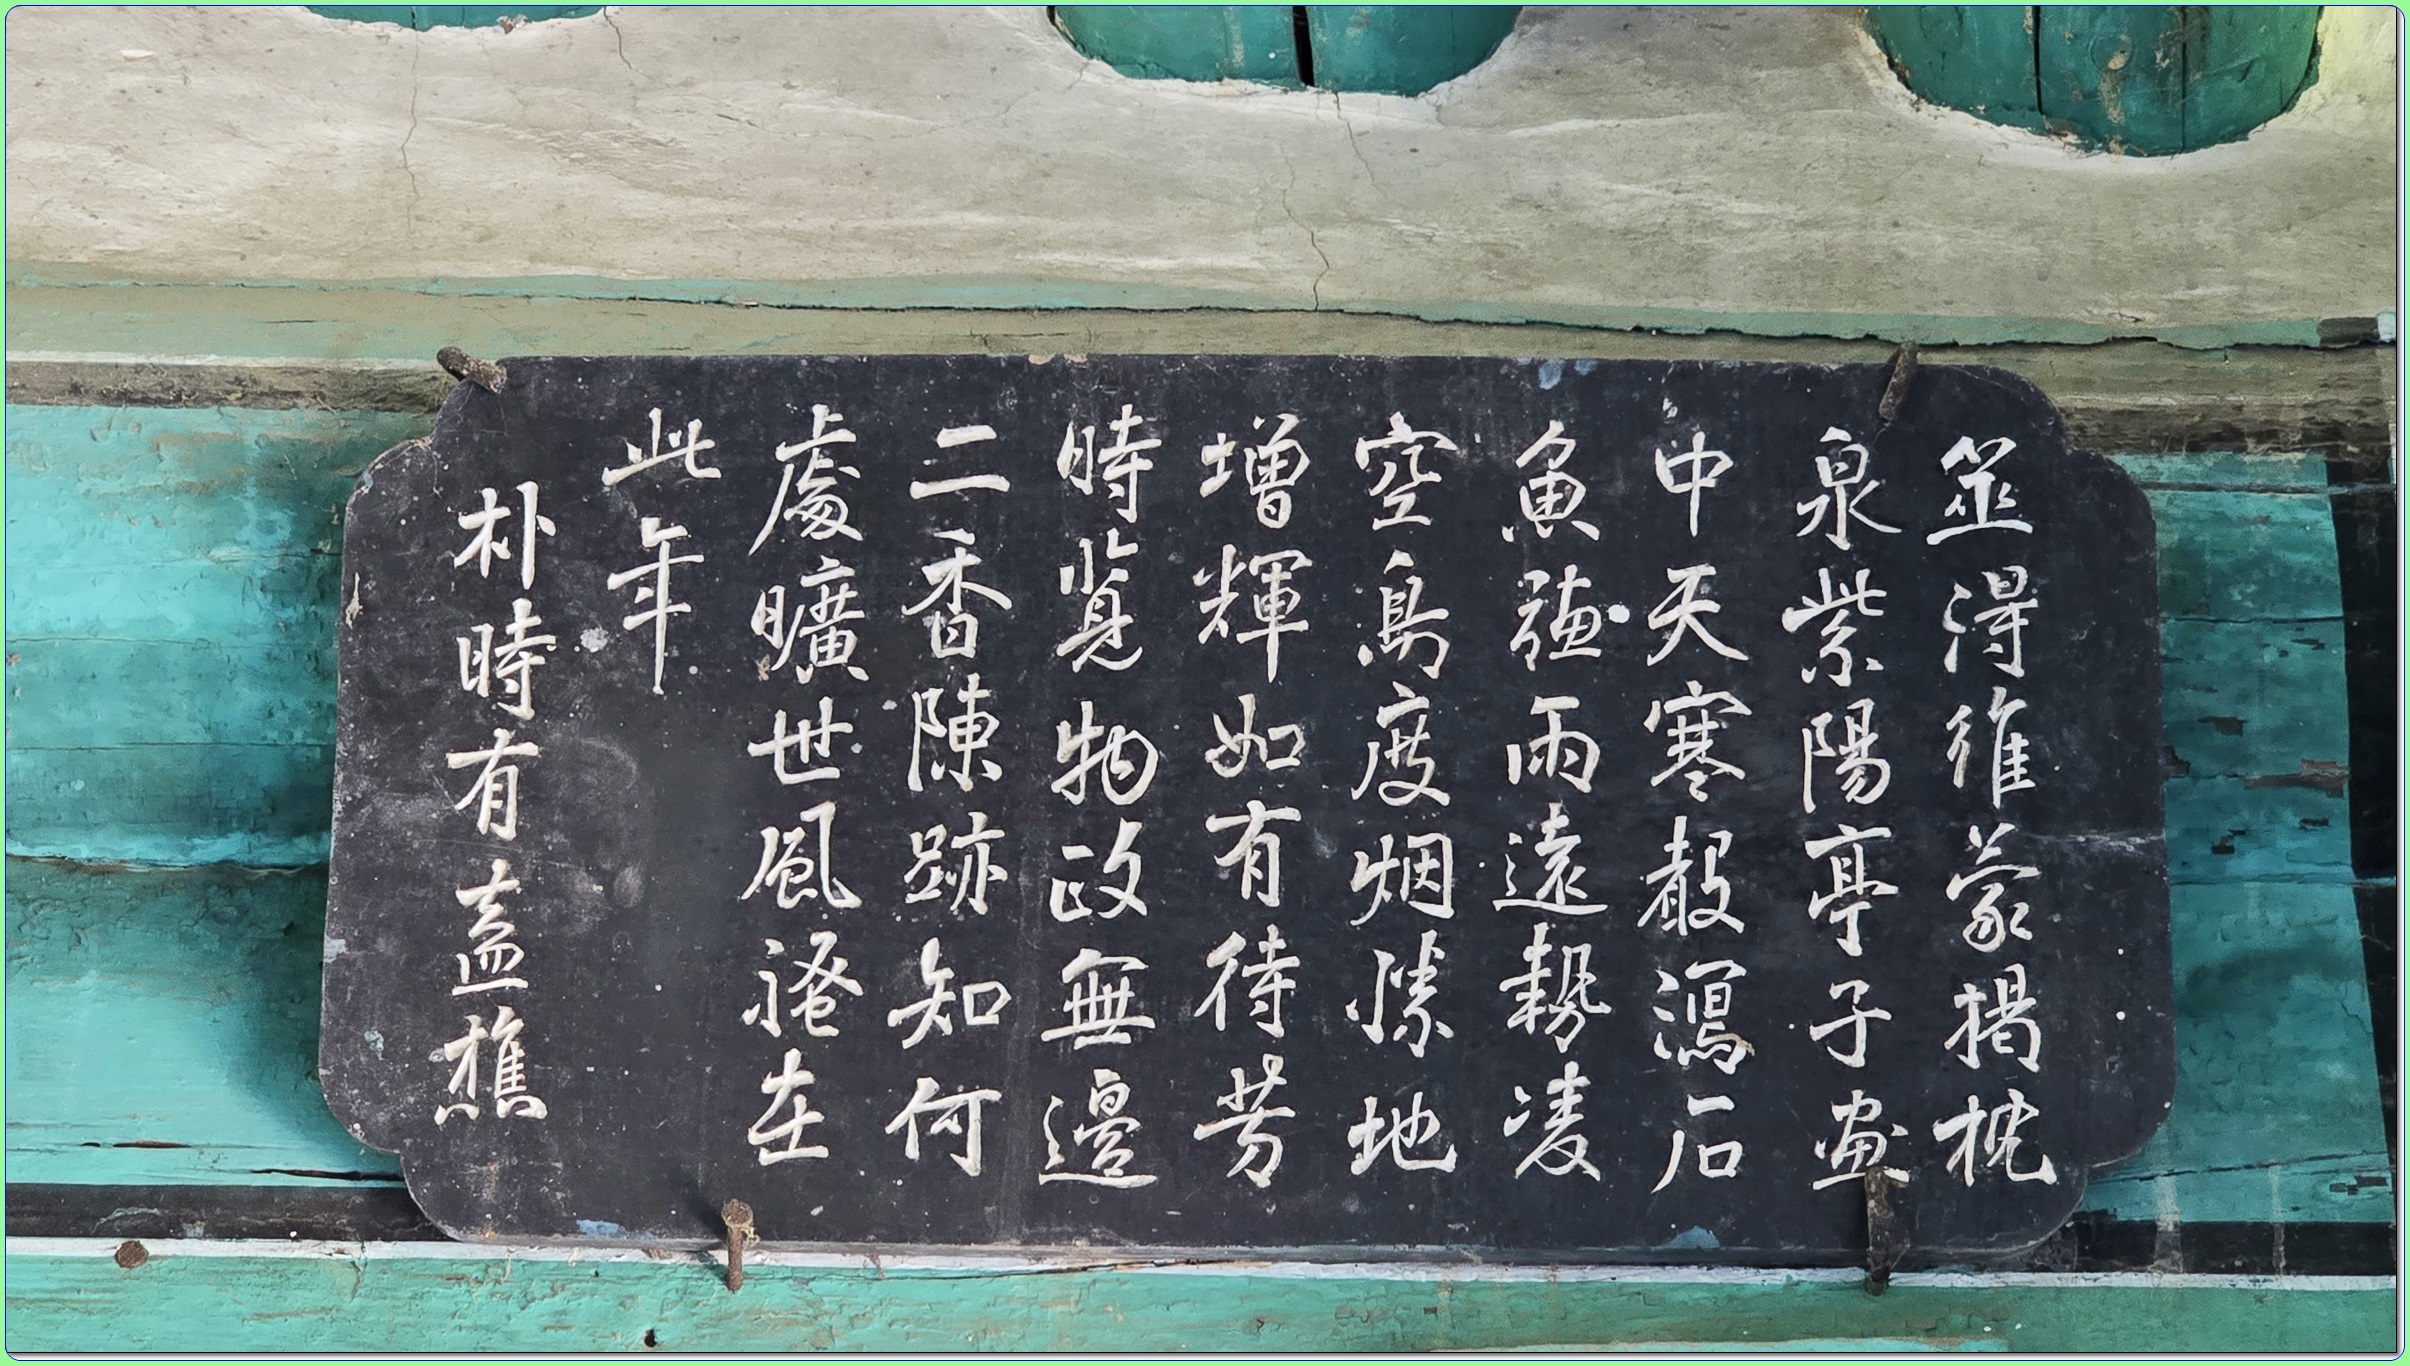 筮得稚蒙揭枕
泉紫陽亭子畫
中天寒聲瀉石
魚聽雨遠勢凌
空鳥度烟勝地
增輝如有待芳
時覽物政無邊
二香陳跡知何
處曠世風騷在
此年
朴時有盍樵